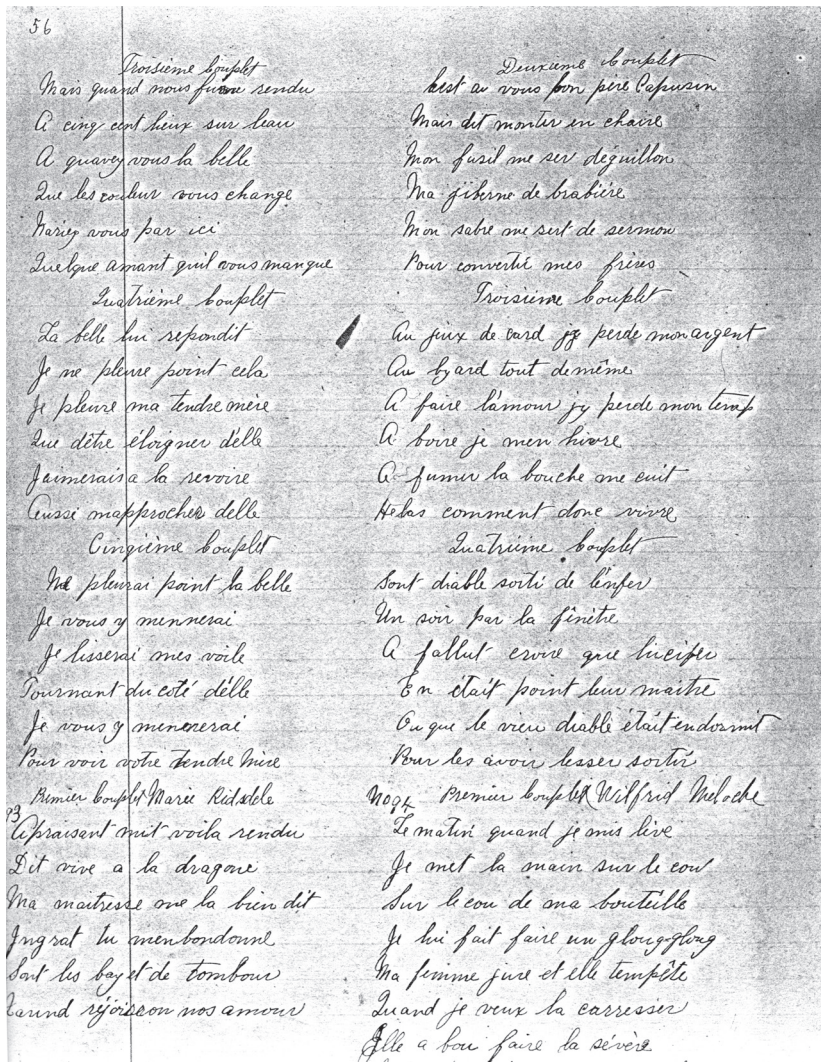 56
Troisième Couplet
Mais quand nous fume rendu
A cinq cent lieux sur leau
A quavey vous la belle
Que les couleur vous change
Mariez vous par ici
Quelque amant quil vous manque
Quatrième Couplet
La belle lui repondit
Je ne pleure point cela
Je pleure ma tendre mère
Que dêtre éloigner délle
Jaimerais a la revoire
Aussi mapprocher delle
Cinqième Couplet
Ne pleurai point la belle
Je vous y mennerai
Je lisserai mes voile
Tournant du coté délle
Je vous y menerai
Pour voir votre tendre Mère
Premier Couplet Marie Ridsdele
93
Apraisant mit voila rendu
Dit vive a la dragone
Ma maitresse me la bien dit
Ingrat tu menbondonne
Sont les bay et de tombour
réjoisson nos amour
Deuxième Couplet
Cest au vous bon père Capusin
Mais dit monter en chaire
Mon fusil me ser déguillon
Ma jiberne de brabière
Mon sabre me sert de sermon
Pour converti mes frères
Troisième Couplet
Au jeux de card jy perde mon argent
Au byard tout de même
A faire lámour jy perde mon temp
A boire je men hivre
A fumer la bouche me cuit
Helas comment donc vivre
Quatrième Couplet
Sont diable sorti de lénfer
Un soir par la fênètre
A fallut croire que lucifer
En était point leur maitre
Ou que le vieu diable était endormit
Pour les avoir lesser sortir
No 94 Premier Couplet Wilfrid Meloche
Le matin quand je mis live
Je met la main sur le cou
Sur le cou de ma bouteille
Je lui fait faire un gloug-gloug
Ma femme jure et elle tempête
Quand je veux la carresser
Elle a bou faire la sévère